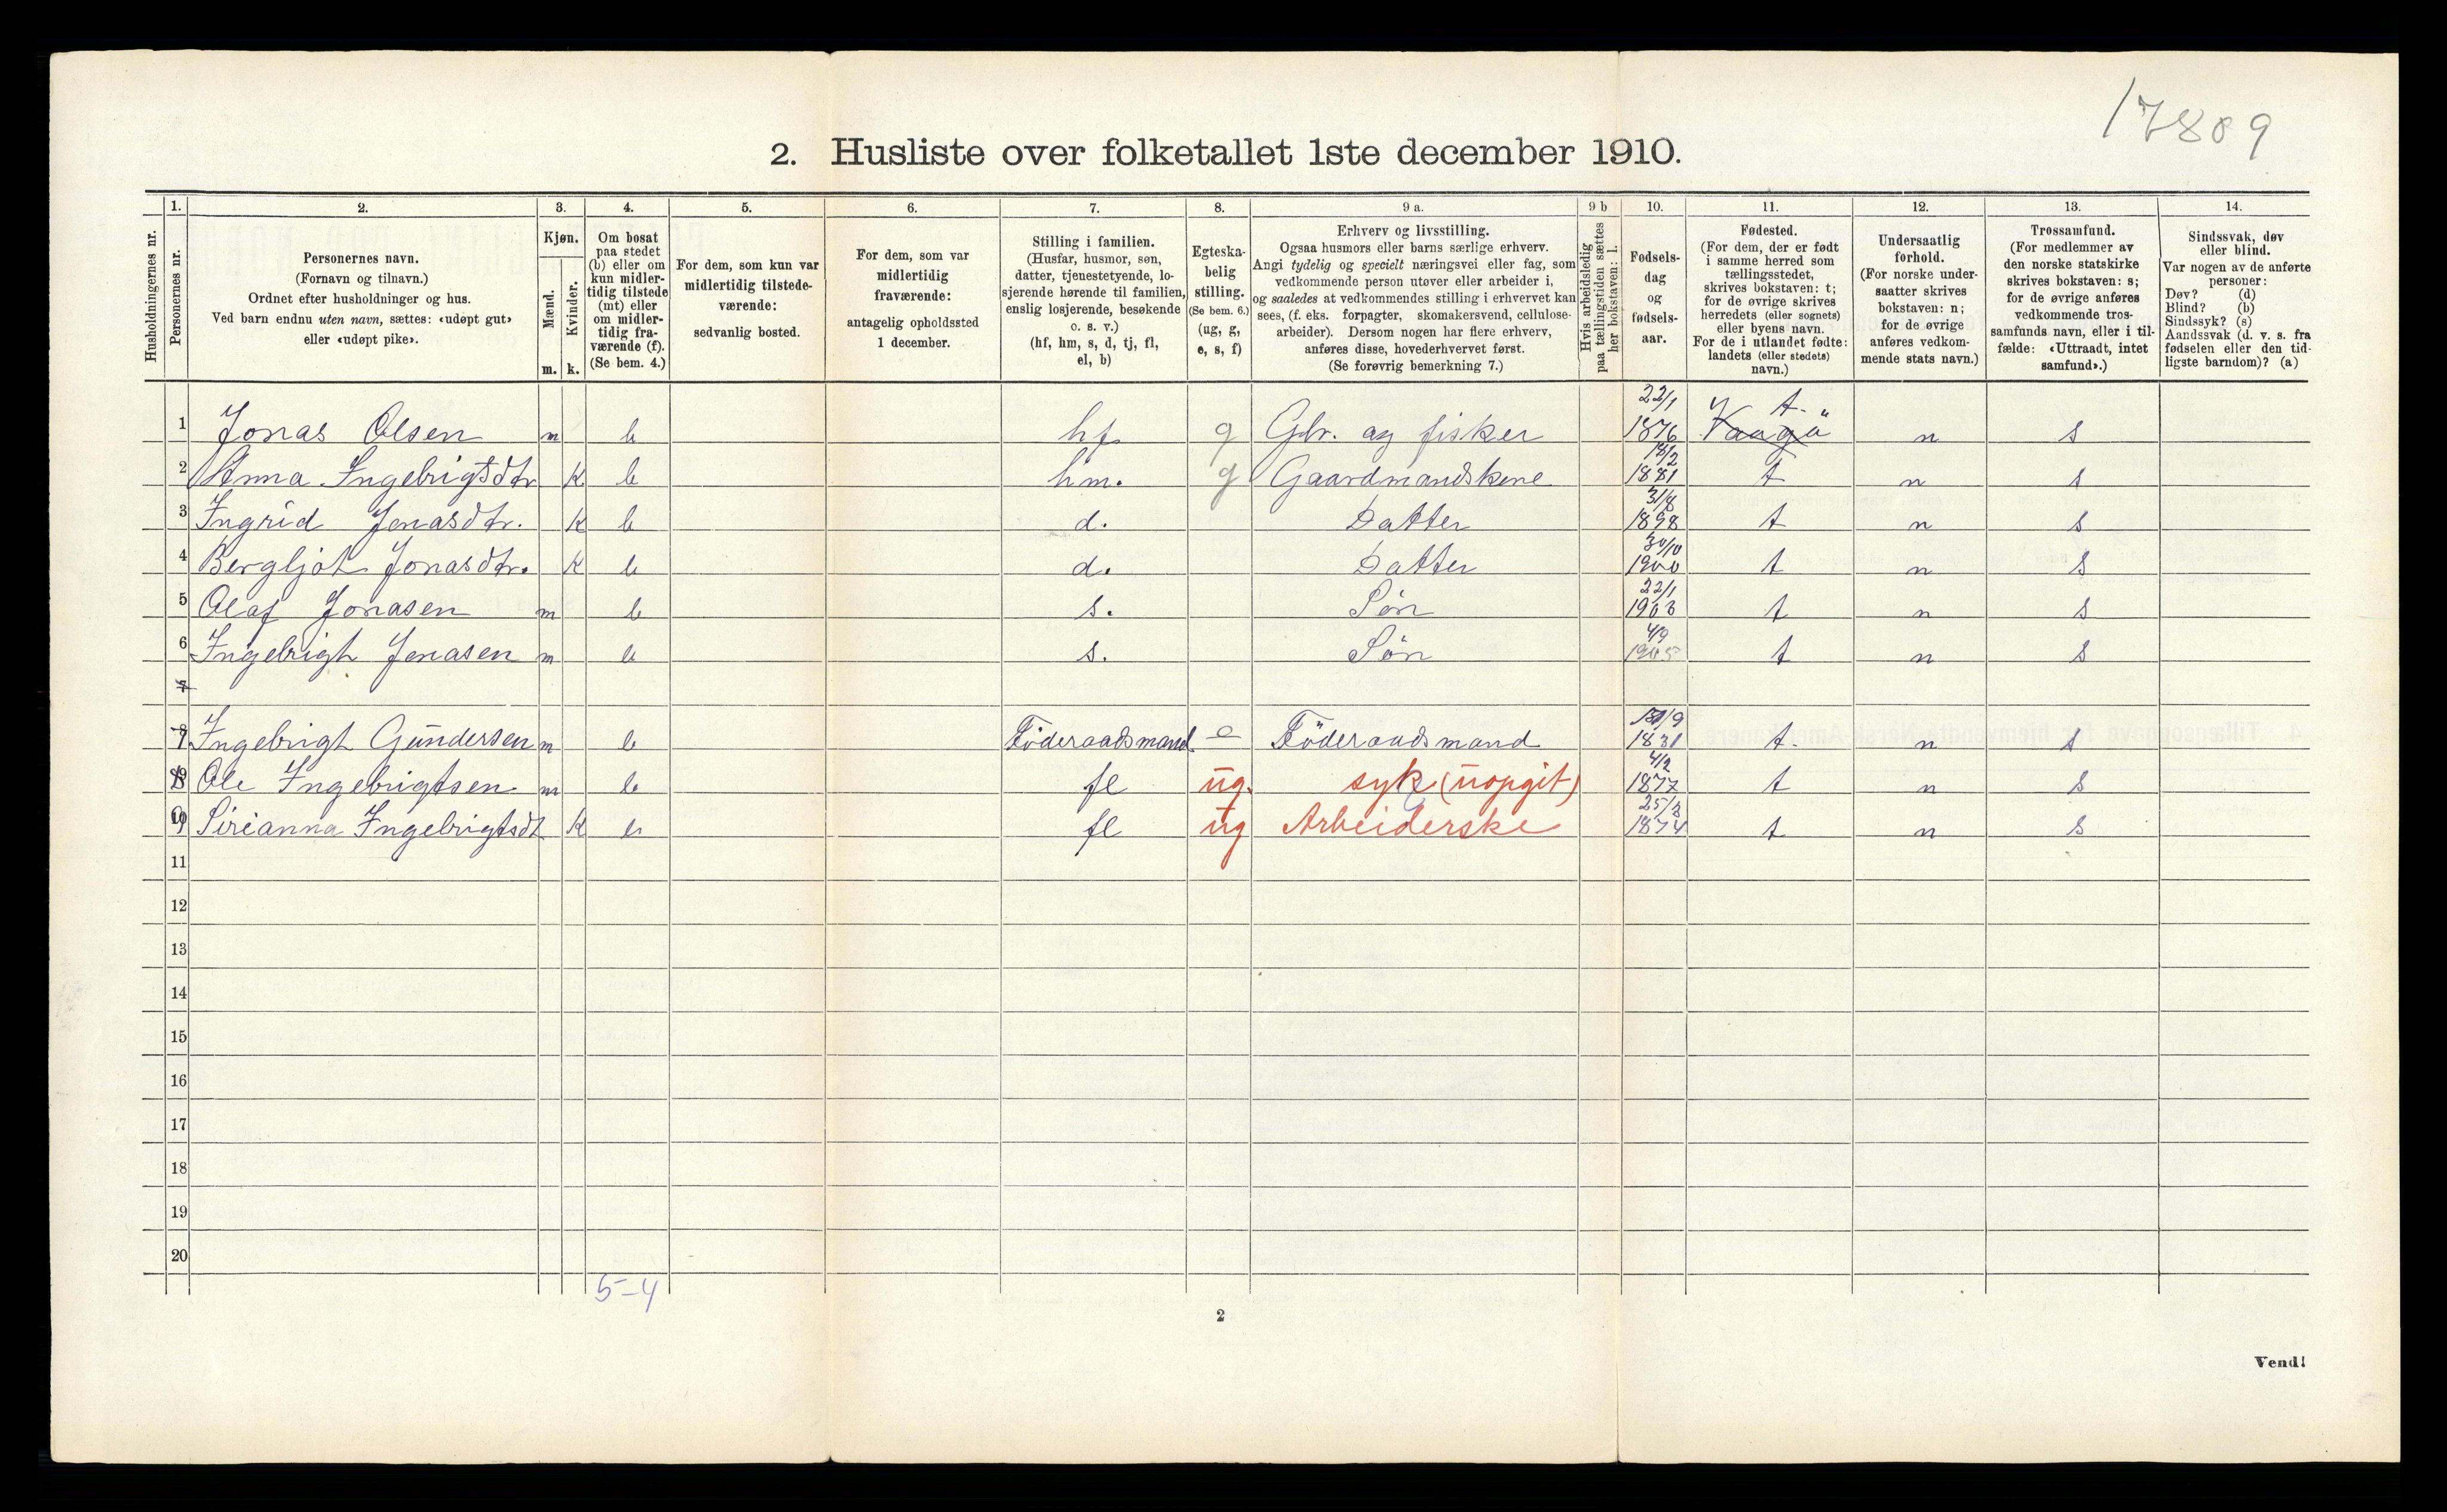 17809
2. Husliste over folketallet 1ste december 1910.
Husholdningernes nr.
1. Personernes nr.
2. Personernes navn.
(Fornavn og tilnavn.)
Ordnet efter husholdninger og hus.
Ved barn endnu uten navn, sættes: «udøpt gut»
eller «udøpt pike».
3. Kjøn.
Mænd. m.
Kvinder. k.
4. Om bosat
paa stedet
(b) eller om
kun midler-
tidig tilstede
(mt) eller
om midler-
tidig fra-
værende (f).
(Se bem. 4.)
5. For dem, som kun var
midlertidig tilstede-
værende:
sedvanlig bosted.
6. For dem, som var
midlertidig
fraværende:
antagelig opholdssted
1 december.
7. Stilling i familien.
(Husfar, husmor, søn,
datter, tjenestetyende, lo-
sjerende hørende til familien,
enslig losjerende, besøkende
o. s. v.)
(hf, hm, s, d, tj, fl,
el, b)
8. Egteska-
belig
stilling.
(Se bem. 6.)
(ug, g,
e, s, f)
9 a. Erhverv og livsstilling.
Ogsaa husmors eller barns særlige erhverv.
Angi tydelig og specielt næringsvei eller fag, som
vedkommende person utøver eller arbeider i,
og saaledes at vedkommendes stilling i erhvervet kan
sees, (f. eks. forpagter, skomakersvend, cellulose-
arbeider). Dersom nogen har flere erhverv,
anføres disse, hovederhvervet først.
(Se forøvrig bemerkning 7.)
9 b Hvis arbeidsledig
paa tællingstiden sættes
her bokstaven: l.
10. Fødsels-
dag
og
fødsels-
aar.
11. Fødested.
(For dem, der er født
i samme herred som
tællingsstedet,
skrives bokstaven: t;
for de øvrige skrives
herredets (eller sognets)
eller byens navn.
For de i utlandet fødte:
landets (eller stedets)
navn.)
12. Undersaatlig
forhold.
(For norske under-
saatter skrives
bokstaven: n;
for de øvrige
anføres vedkom-
mende stats navn.)
13. Trossamfund.
(For medlemmer av
den norske statskirke
skrives bokstaven: s;
for de øvrige anføres
vedkommende tros-
samfunds navn, eller i til-
fælde: «Uttraadt, intet
samfund».)
14. Sindssvak, døv
eller blind.
Var nogen av de anførte
personer:
Døv? (d)
Blind? (b)
Sindssyk? (s)
Aandssvak (d. v. s. fra
fødselen eller den tid-
ligste barndom)? (a)
1 Jonas Olsen m b hf. g Gbr. og fisker 22/1 1876 t. n s
2 Anna Ingebrigtsdtr K b hm. g Gaardmandskone 18/2 1881 t n s
3 Ingrid Jonasdtr. K b d. Datter 31/8 1898 t n s
4 Bergljot Jonasdtr. K b d. Datter 30/10 1900 t n s
5 Olaf Jonasen m b s. Søn 22/1 1903 t n s
6 Ingebrigt Jonasen m b s. Søn 4/9 1905 t n s
7
7 Ingebrigt Gundersen m b Föderaadsmand e Föderaadsmand 1831 t. n s
8 Ole Ingebrigtsen m b fl ug. syk (uopgit) 4/2 1877 t n s
9 Sirianna Ingebrigtsdt K b fl ug Arbeiderske 25/3 1874 t n s
11
12
13
14
15
16
17
18
19
20
5-4
2
Vend!